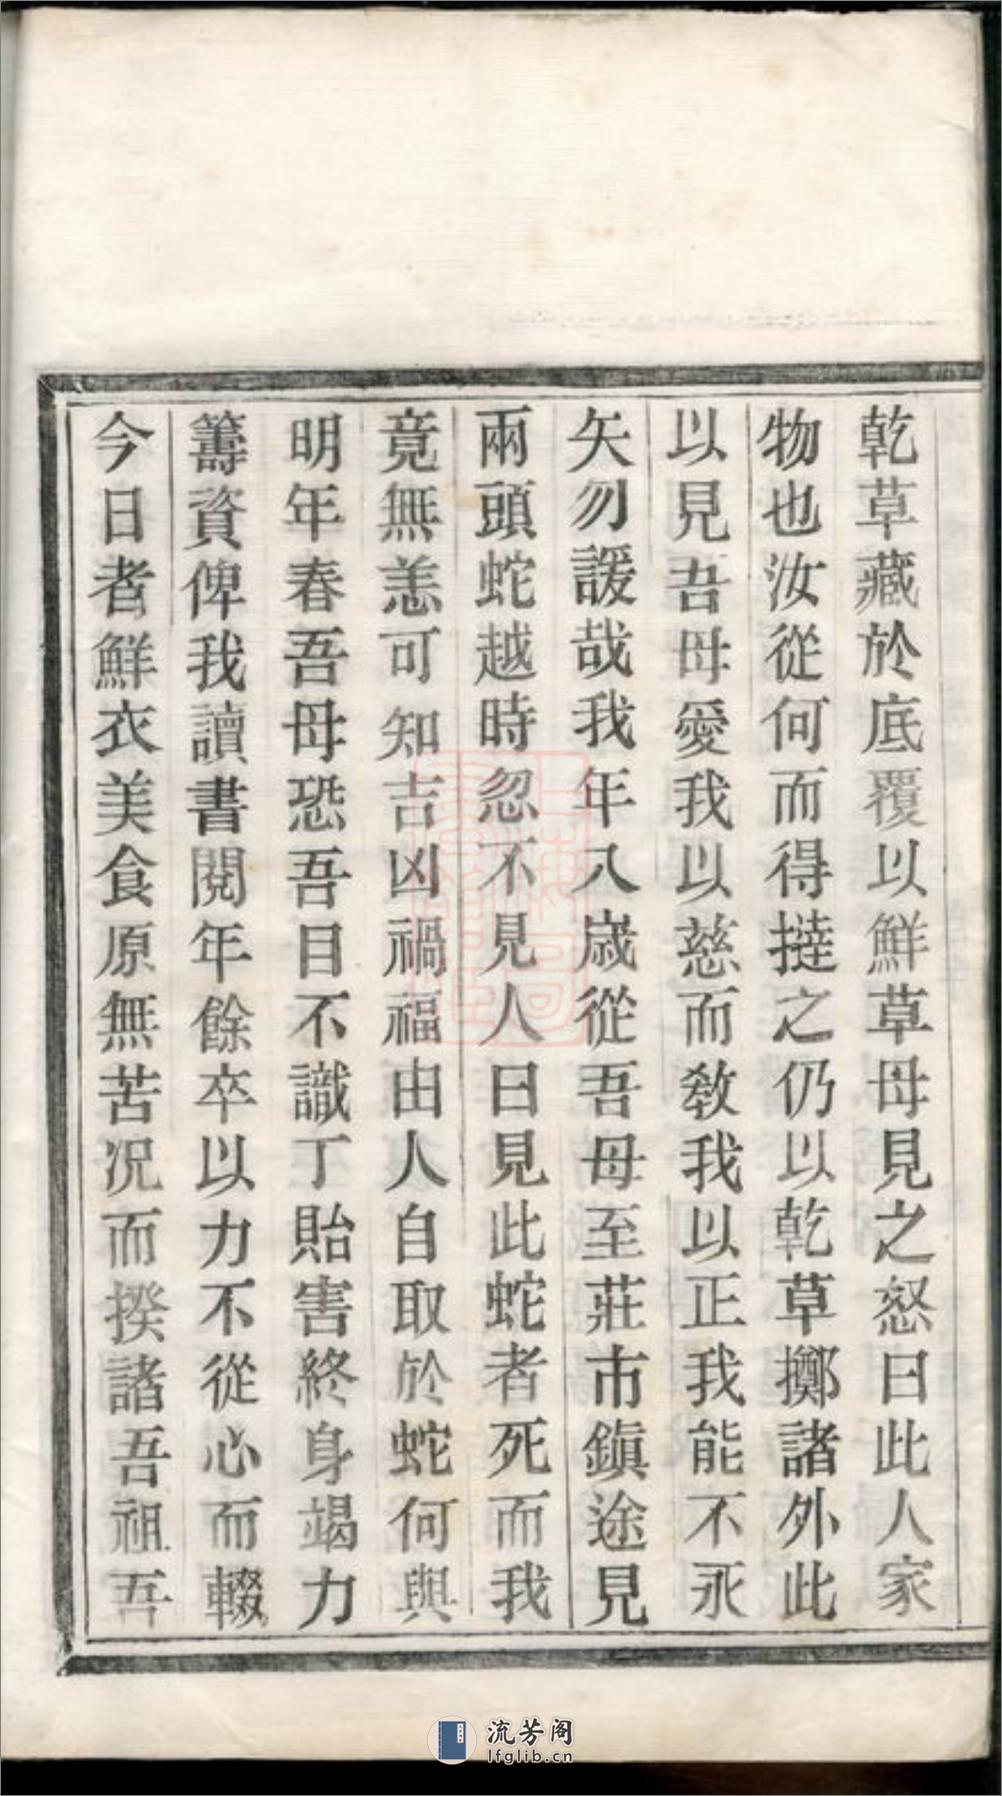 乾草藏於底覆以鮮草母見之怒曰此人家
物也汝從何而得撻之仍以乾草擲諸外此
以見吾母愛我以慈而教我以正我能不永
矢勿諼哉我年八歲從吾母至莊市鎮途見
兩頭蛇越時忽不見人曰見此蛇者死而我
竟無恙可知吉凶禍福由人自取於蛇何與
明年春吾母恐吾目不識丁貽害終身竭力
籌資俾我讀書閱年餘卒以力不從心而輟
今日者鮮衣美食原無苦況而揆諸吾祖吾
流芳阁
lfglib.cn